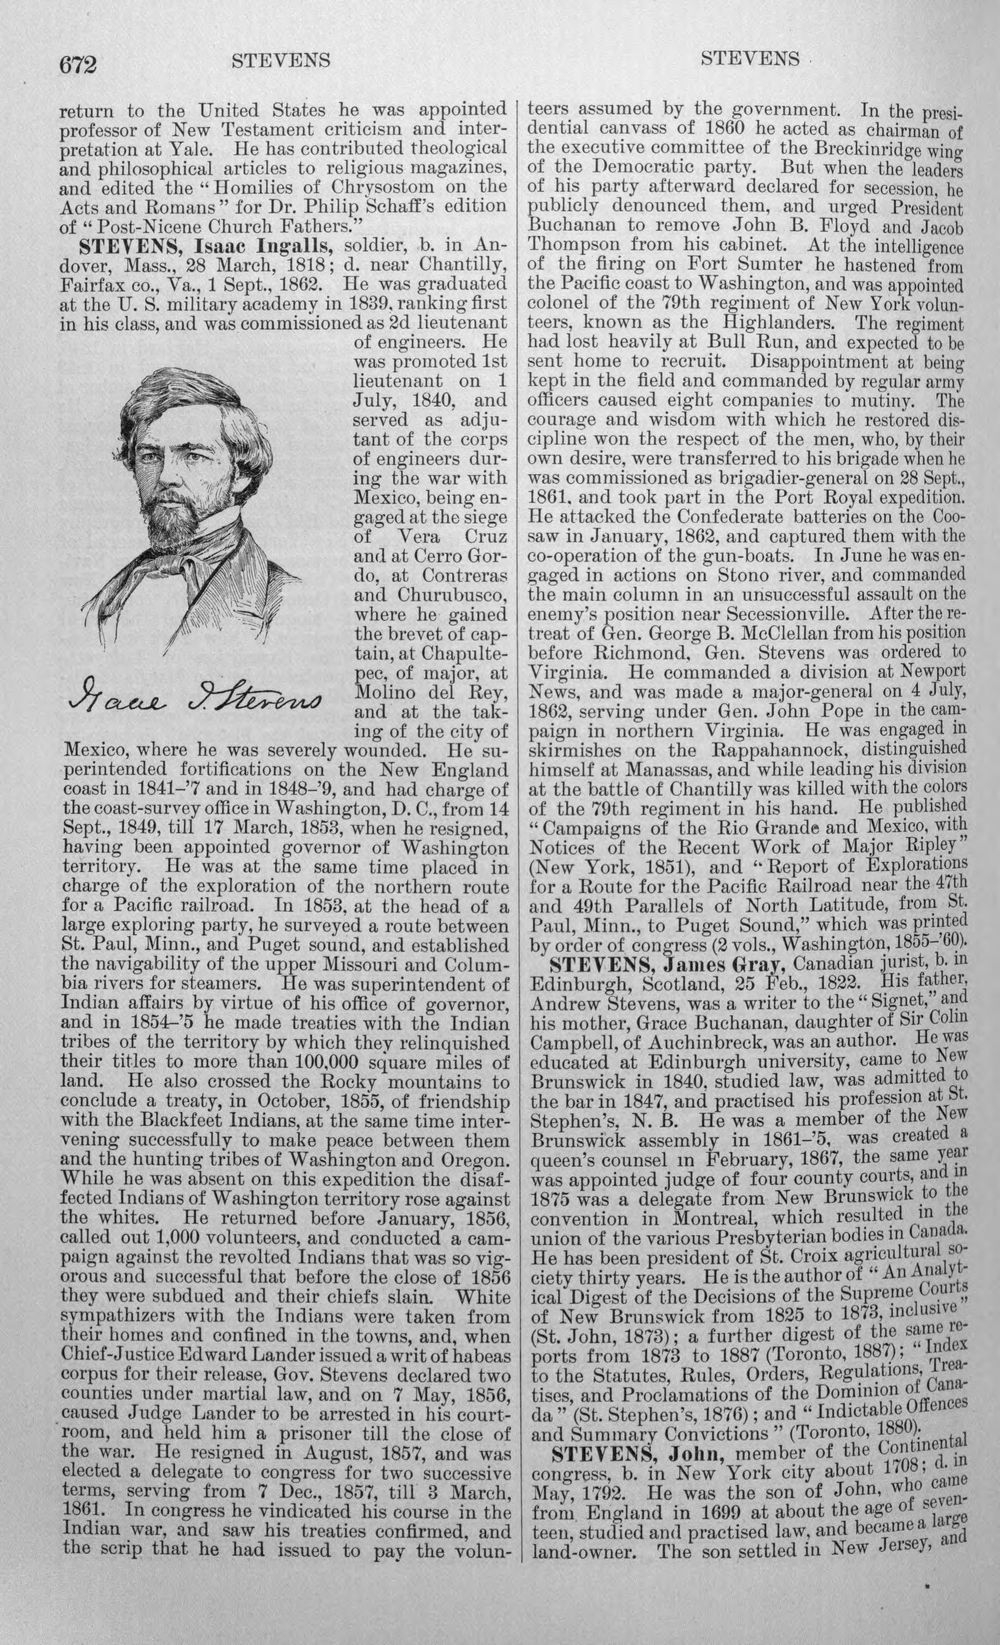 672
STEVENS
STEVENS
return to the United States he was appointed
professor of New Testament criticism and inter-
pretation at Yale. He has contributed theological
and philosophical articles to religious magazines,
and edited the “Homilies of Chrysostom on the
Acts and Romans” for Dr. Philip Schaff’s edition
of “Post-Nicene Church Fathers.”
STEVENS, Isaac Ingalls, soldier, b. in An-
dover, Mass., 28 March, 1818; d. near Chantilly,
Fairfax co., Va., 1 Sept., 1862. He was graduated
at the U. S. military academy in 1839, ranking first
in his class, and was commissioned as 2d lieutenant
of engineers. He
was promoted 1st
lieutenant on 1
July, 1840, and
served as adju-
tant of the corps
of engineers dur-
ing the war with
Mexico, being en-
gaged at the siege
of Vera Cruz
and at Cerro Gor-
do, at Contreras
and Churubusco,
where he gained
the brevet of cap-
tain, at Chapulte-
pec, of major, at
Molino del Rey,
and at the tak-
ing of the city of
Isaac I. Stevens
Mexico, where he was severely wounded. He su-
perintended fortifications on the New England
coast in 1841–’7 and in 1848–’9, and had charge of
the coast-survey office in Washington, D. C., from 14
Sept., 1849, till 17 March, 1853, when he resigned,
having been appointed governor of Washington
territory. He was at the same time placed in
charge of the exploration of the northern route
for a Pacific railroad. In 1853, at the head of a
large exploring party, he surveyed a route between
St. Paul, Minn., and Puget sound, and established
the navigability of the upper Missouri and Colum-
bia rivers for steamers. He was superintendent of
Indian affairs by virtue of his office of governor,
and in 1854–’5 he made treaties with the Indian
tribes of the territory by which they relinquished
their titles to more than 100,000 square miles of
land. He also crossed the Rocky mountains to
conclude a treaty, in October, 1855, of friendship
with the Blackfeet Indians, at the same time inter-
vening successfully to make peace between them
and the hunting tribes of Washington and Oregon.
While he was absent on this expedition the disaf-
fected Indians of Washington territory rose against
the whites. He returned before January, 1856,
called out 1,000 volunteers, and conducted a cam-
paign against the revolted Indians that was so vig-
orous and successful that before the close of 1856
they were subdued and their chiefs slain. White
sympathizers with the Indians were taken from
their homes and confined in the towns, and, when
Chief-Justice Edward Lander issued a writ of habeas
corpus for their release, Gov. Stevens declared two
counties under martial law, and on 7 May, 1856,
caused Judge Lander to be arrested in his court-
room, and held him a prisoner till the close of
the war. He resigned in August, 1857, and was
elected a delegate to congress for two successive
terms, serving from 7 Dec., 1857, till 3 March,
1861. In congress he vindicated his course in the
Indian war, and saw his treaties confirmed, and
the scrip that he had issued to pay the volun-
teers assumed by the government. In the presi-
dential canvass of 1860 he acted as chairman of
the executive committee of the Breckinridge wing
of the Democratic party. But when the leaders
of his party afterward declared for secession, he
publicly denounced them, and urged President
Buchanan to remove John B. Floyd and Jacob
Thompson from his cabinet. At the intelligence
of the firing on Fort Sumter he hastened from
the Pacific coast to Washington, and was appointed
colonel of the 79th regiment of New York volun-
teers, known as the Highlanders. The regiment
had lost heavily at Bull Run, and expected to be
sent home to recruit. Disappointment at being
kept in the field and commanded by regular army
officers caused eight companies to mutiny. The
courage and wisdom with which he restored dis-
cipline won the respect of the men, who, by their
own desire, were transferred to his brigade when he
was commissioned as brigadier-general on 28 Sept.,
1861, and took part in the Port Royal expedition.
He attacked the Confederate batteries on the Coo-
saw in January, 1862, and captured them with the
co-operation of the gun-boats. In June he was en-
gaged in actions on Stono river, and commanded
the main column in an unsuccessful assault on the
enemy’s position near Secessionville. After the re-
treat of Gen. George B. McClellan from his position
before Richmond, Gen. Stevens was ordered to
Virginia. He commanded a division at Newport
News, and was made a major-general on 4 July,
1862, serving under Gen. John Pope in the cam-
paign in northern Virginia. He was engaged in
skirmishes on the Rappahannock, distinguished
himself at Manassas, and while leading his division
at the battle of Chantilly was killed with the colors
of the 79th regiment in his hand. He published
“Campaigns of the Rio Grande and Mexico, with
Notices of the Recent Work of Major Ripley”
(New York, 1851), and “Report of Explorations
for a Route for the Pacific Railroad near the 47th
and 49th Parallels of North Latitude, from St.
Paul, Minn., to Puget Sound,” which was printed
by order of congress (2 vols., Washington, 1855–’60).
STEVENS, James Gray, Canadian jurist, b. in
Edinburgh, Scotland, 25 Feb., 1822. His father,
Andrew Stevens, was a writer to the “Signet,” and
his mother, Grace Buchanan, daughter of Sir Colin
Campbell, of Auchinbreck, was an author. He was
educated at Edinburgh university, came to New
Brunswick in 1840, studied law, was admitted to
the bar in 1847, and practised his profession at St.
Stephen’s, N. B. He was a member of the New
Brunswick assembly in 1861–’5, was created a
queen’s counsel in February, 1867, the same year
was appointed judge of four county courts, and in
1875 was a delegate from New Brunswick to the
convention in Montreal, which resulted in the
union of the various Presbyterian bodies in Canada.
He has been president of St. Croix agricultural so-
ciety thirty years. He is the author of “An Analyt-
ical Digest of the Decisions of the Supreme Courts
of New Brunswick from 1825 to 1873, inclusive”
(St. John, 1873); a further digest of the same re-
ports from 1873 to 1887 (Toronto, 1887); “Index
to the Statutes, Rules, Orders, Regulations, Trea-
tises, and Proclamations of the Dominion of Cana-
da” (St. Stephen’s, 1876); and “Indictable Offences
and Summary Convictions” (Toronto, 1880).
STEVENS, John, member of the Continental
congress, b. in New York city about 1708; d. in
May, 1792. He was the son of John, who came
from England in 1699 at about the age of seven-
teen, studied and practised law, and became a large
land-owner. The son settled in New Jersey, and